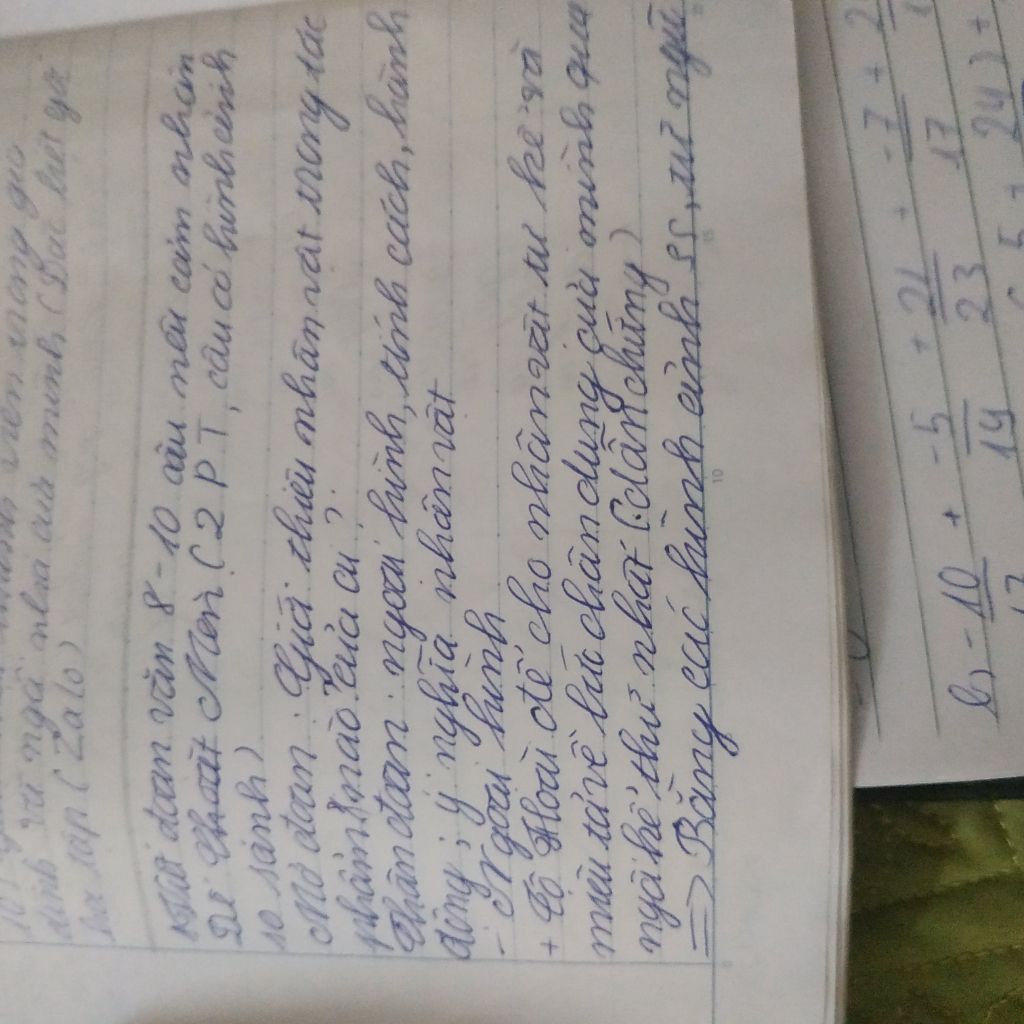 dình và ngã nhà của mình (Đặc biệt
(Zalo)
Viết đoạn văn 8-10 câu nêu cảm nhận
Dế Choắt Mèn (2 PT, câu có hình ảnh
so sánh)
Mở đoạn: Giới thiệu nhân vật trong tác
phẩm nào? của ai?
Thân đoạn: ngoại hình, tính cách, hành
động, ý nghĩa nhân vật
- Ngoại hình
+ Tô Hoài để cho nhân vật tự kể và
miêu tả vẽ bức chân dung của mình qua
ngôi kể thứ nhất (dẫn chứng)
=> Bằng các hình ảnh ss, từ ngữ
b, -10 + -5 + 21 + -7 + 2
17 19 23 17
5 + 24) +